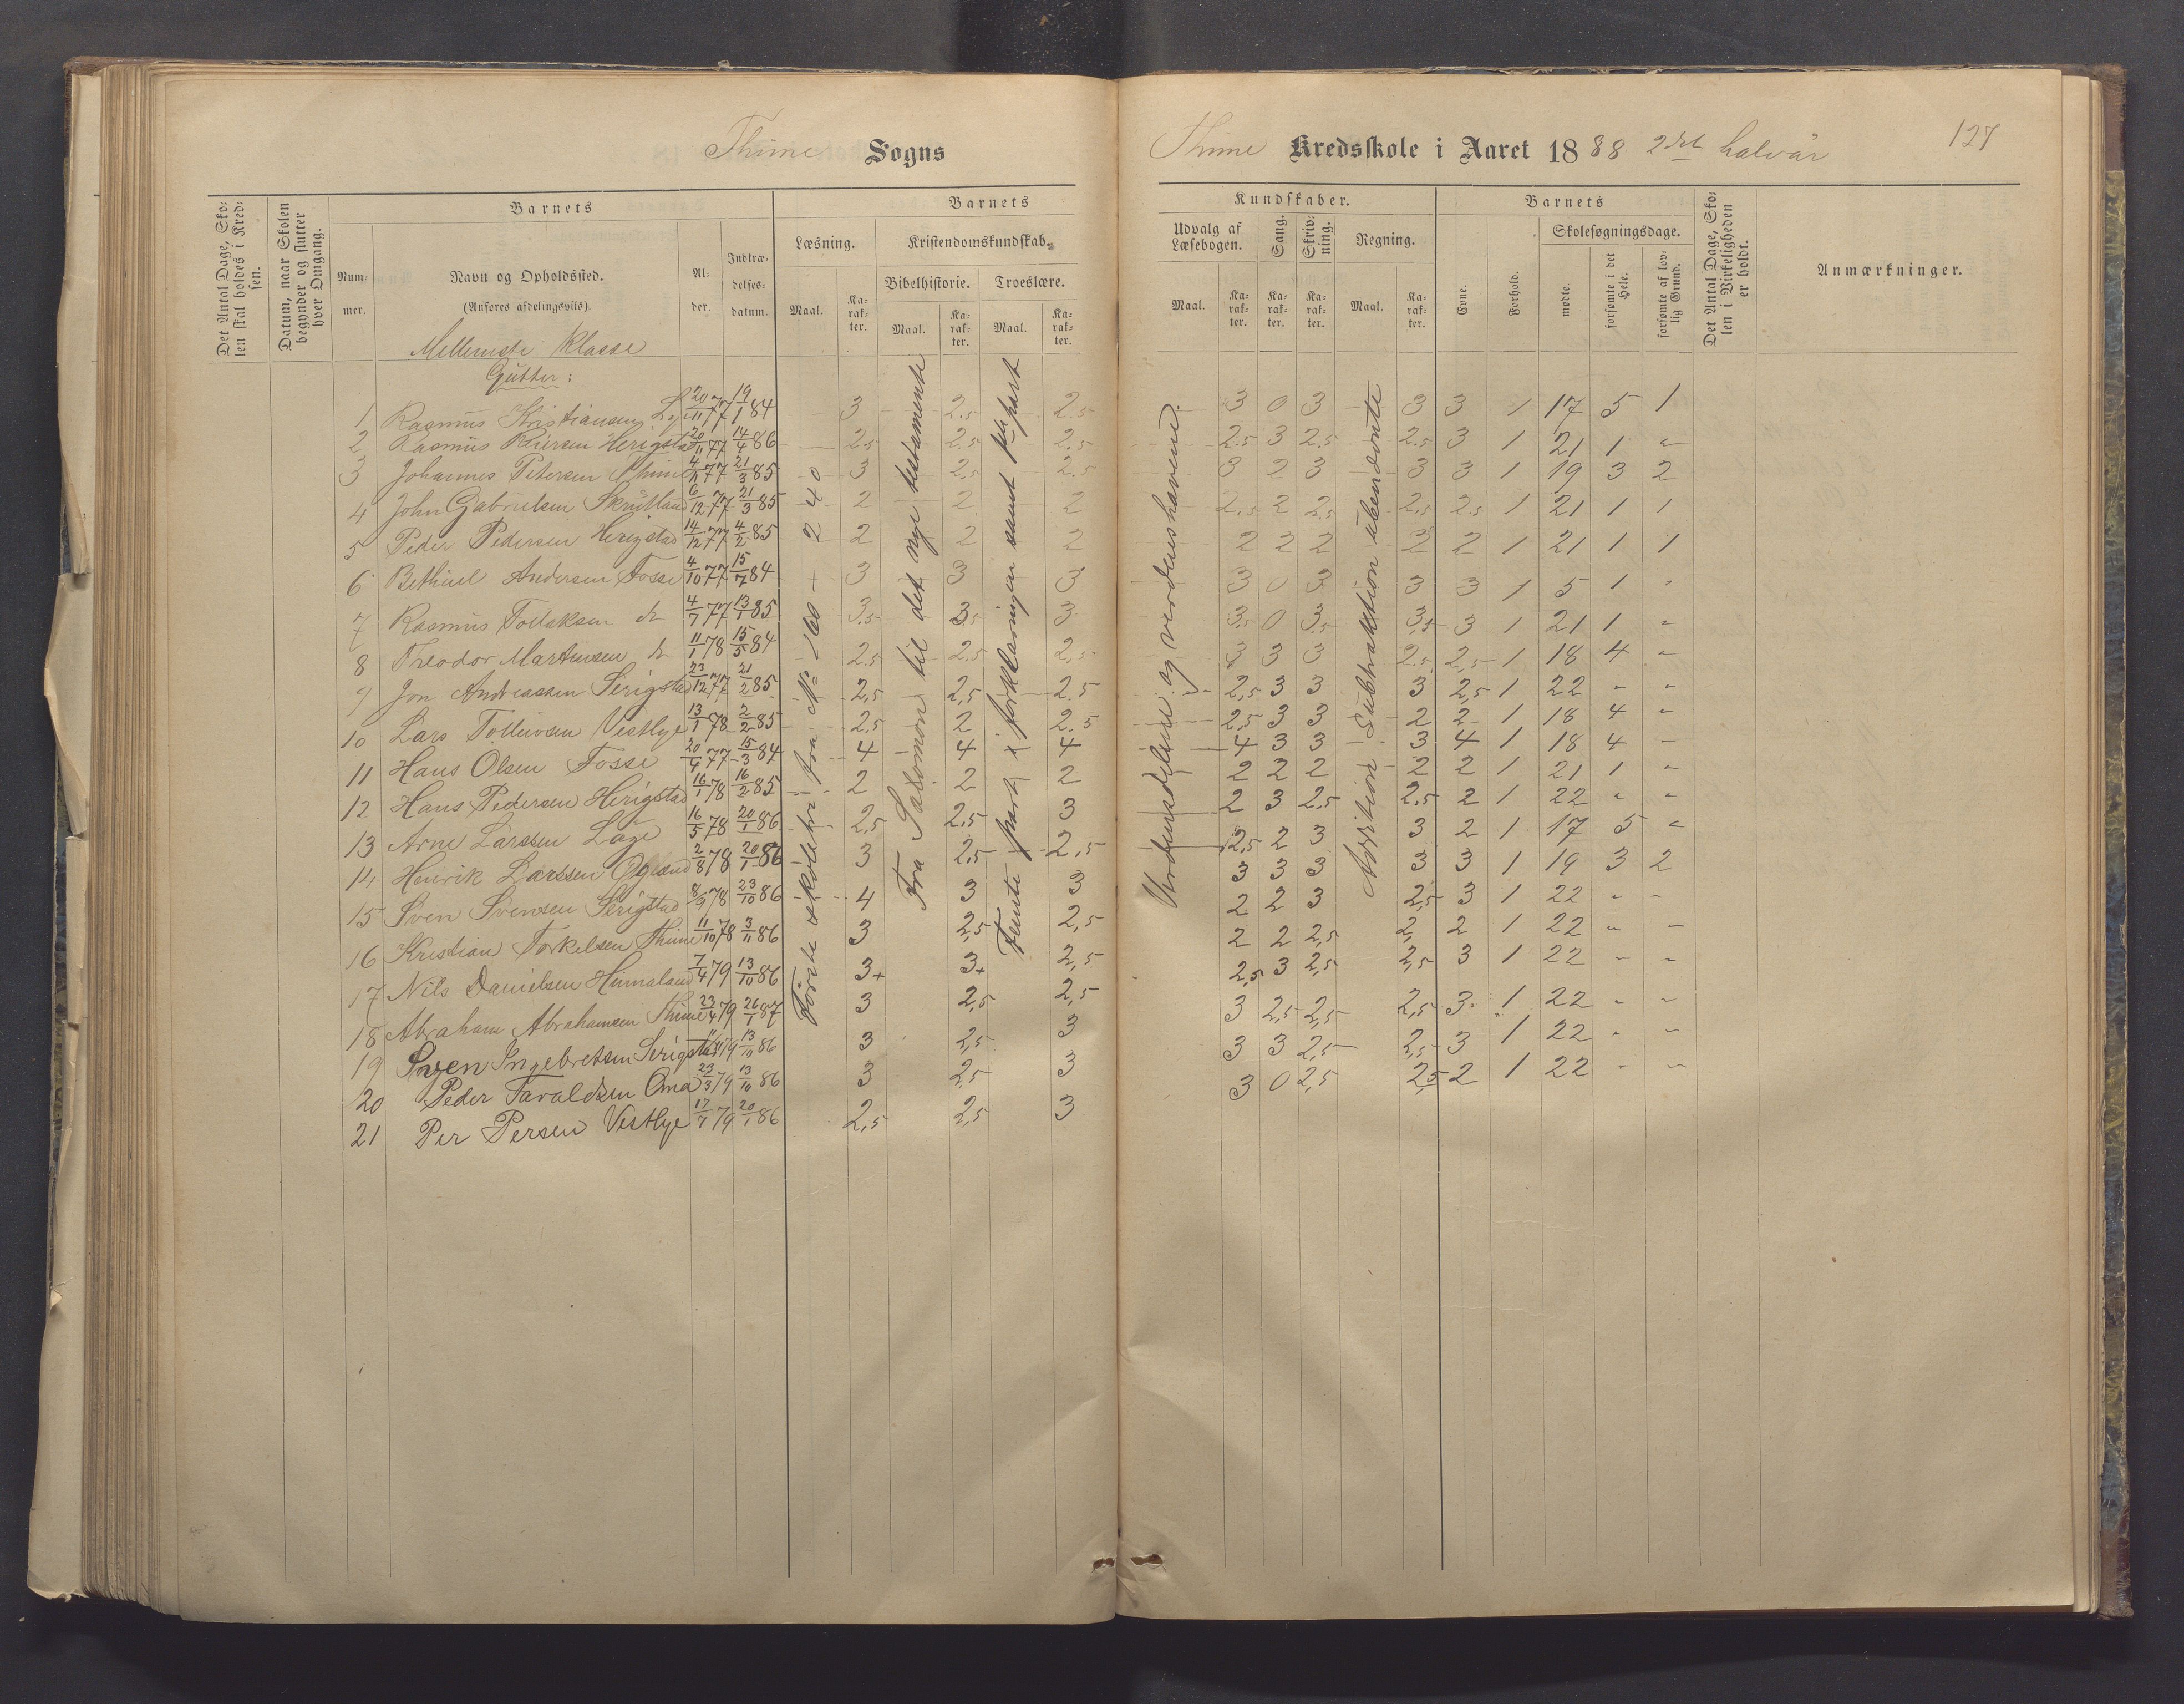 Thime Sogns
Thime Kredsskole i Aaret 1888 2det halvår 127
Det Antal Dage, Skolen skal holdes i Kredsen.
Datum, naar Skolen begynder og slutter hver Omgang.
Barnets
Nummer.
Navn og Opholdssted.
(Anføres afdelingsviis).
Alder.
Indtrædelsesdatum.
Barnets
Læsning.
Maal.
Karakter.
Kristendomskundskab.
Bibelhistorie.
Maal.
Karakter.
Troeslære.
Maal.
Karakter.
Kundskaber.
Udvalg af Læsebogen.
Maal.
Karakter.
Sang.
Karakter.
Skrivning.
Karakter.
Regning.
Maal.
Karakter.
Barnets
Evne.
Forhold.
Skolesøgningsdage.
mødte.
forsømte i det Hele.
forsømte af lovlig Grund.
Det Antal Dage, Skolen i Virkeligheden er holdt.
Anmærkninger.
Mellemste Klasse
Gutter:
Første skoletrin fra No 160 - 240
Fra Salomon til det nye testamente
Femte part i forklaringen samt
Verdensdelene og verdenshavene.
Addition Subtraktion ubendvnte
1 Rasmus Kristiansen Lye 20/11 77 19/1 84 3 2.5 2.5 3 0 3 3 3 1 17 5 1
2 Rasmus Herigstad 20/11 77 14/4 86 2.5 2.5 2.5 2.5 3 2.5 2.5 3 1 21 1 "
3 Johannes Petersen Thime 4/11 77 21/3 85 3 2.5 2.5 3 2 3 3 3 1 19 3 2
4 John Gabrielsen Skrudland 6/12 77 21/3 85 2 2 2 2.5 2 2.5 2.5 2.5 1 21 1 1
5 Peder Pedersen Herigstad 14/12 77 4/2 85 2 2 2 2 2 2 2 2 1 21 1 1
6 Bethuel Andersen Fosse 4/10 77 15/7 84 3 3 3 3 0 3 3 3 1 5 1 "
7 Rasmus Tollaksen do 4/7 77 13/1 85 3.5 3.5 3 3.5 0 3.5 3.5 3 1 21 1 "
8 Theodor Martinsen do 11/1 78 15/5 84 2.5 2.5 2.5 3 3 3 2.5 2.5 1 18 4 "
9 Jon Andreassen Serigstad 23/12 77 21/2 85 2,5 2,5 2.5 2,5 3 3 3 2,5 1 22 " "
10 Lars Tolleivsen Vestlye 13/1 78 2/2 85 2,5 2 2.5 2,5 3 3 2 2 1 18 4 "
11 Hans Olsen Fosse 20/4 77 15/3 84 4 4 4 4 3 3 3 4 1 18 4 "
12 Hans Pedersen Herigstad 16/1 78 16/2 85 2 2 2 2 2 2 2 2 1 21 1 "
13 Arne Larssen Lage 16/5 78 20/1 86 2,5 2,5 3 2 3 2,5 2,5 2 1 22 " "
14 Henrik Larssen 2/8 78 20/1 86 3 2,5 2,5 2,5 2 3 3 2 1 17 5 "
15 Sven Svensen Serigstad 8/9 78 23/10 86 4 3 3 3 3 3 3 3 1 19 3 2
16 Kristian Torkelsen Thime 11/10 78 3/11 86 3 2,5 2,5 2 2 3 2,5 3 1 22 " "
17 Nils Danielsen Hinnaland 7/4 79 13/10 86 3+ 3+ 2,5 2 2 2,5 2, 2 1 22 " "
18 Abraham Abrahamsen Thime 23/4 79 26/1 87 3 2,5 2,5 2,5 3 2,5 2,5 3 1 22 " "
19 Sven Ingebretsen Serigstad 79 13/10 86 3 2,5 3 3 2,5 2,5 2,5 3 1 22 " "
20 Peder Taraldsen Oma 23/3 79 13/10 86 3 2,5 3 3 3 2,5 2,5 3 1 22 " "
21 Per Persen Vestlye 17/7 79 20/1 86 2,5 2,5 3 3 0 2,5 2,5 2 1 22 " "